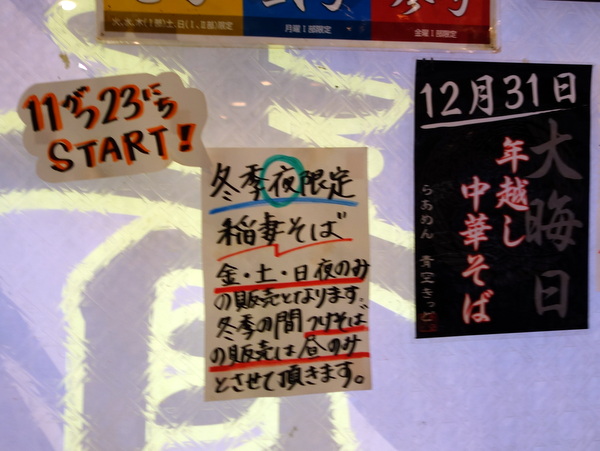 火、水、木(1部)土、日(1、2部)限定
月曜1部限定
金曜1部限定
11がつ23にち
START!
冬季夜限定
稲妻そば
金・土・日夜のみ
の販売となります。
冬季の間つけそば
の販売は昼のみ
とさせて頂きます。
12月31日
大晦日
年越し
中華そば
らあめん 青空きっど